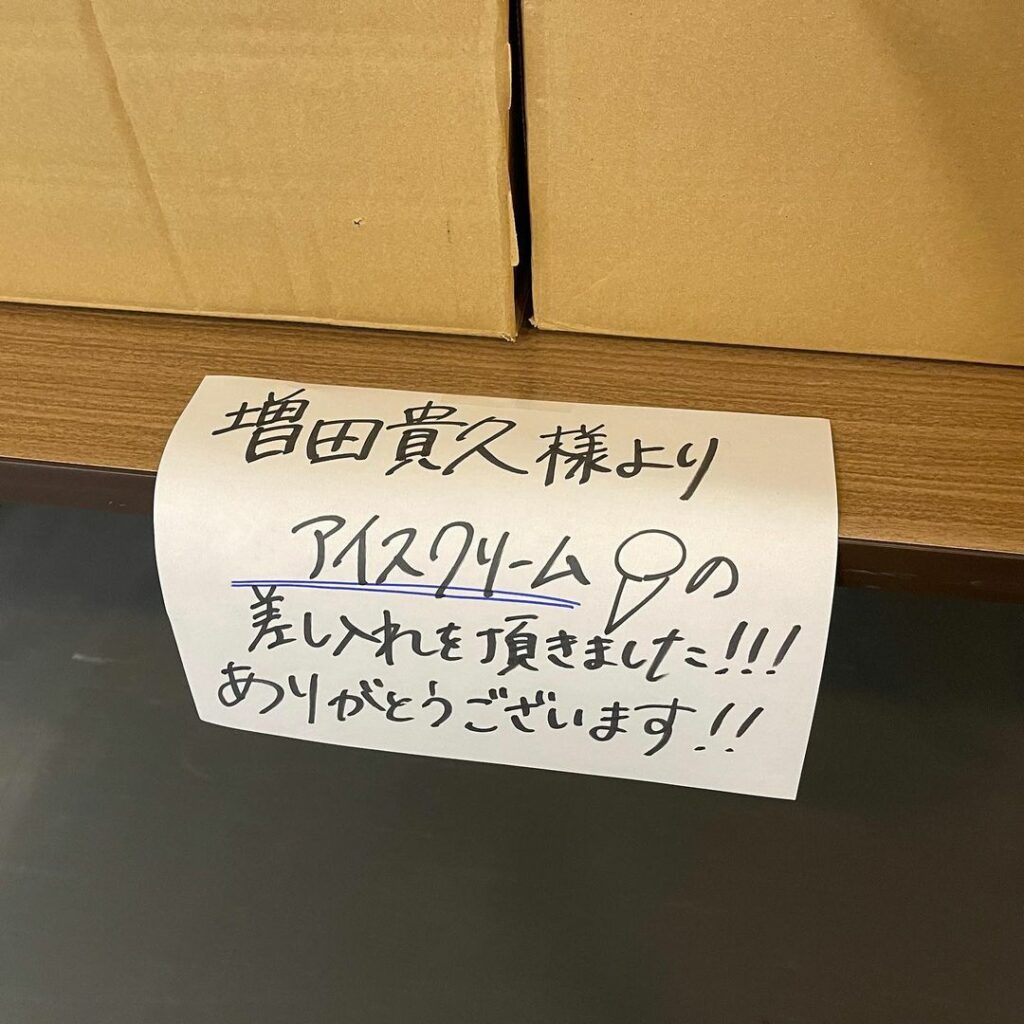 増田貴久様より
アイスクリームの
差し入れを頂きました!!!
ありがとうございます!!